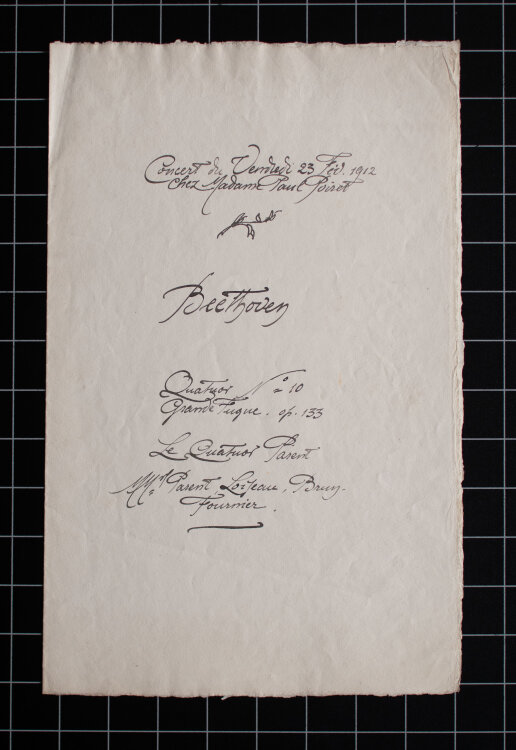 Concert du Vendredi 23 Fév. 1912
Chez Madame Paul Poiret
Beethoven
Quatuor Nº 10
Grande Fugue. op. 133
Le Quatuor Parent
MMrs Parent Loiseau, Brun.
Fournier.